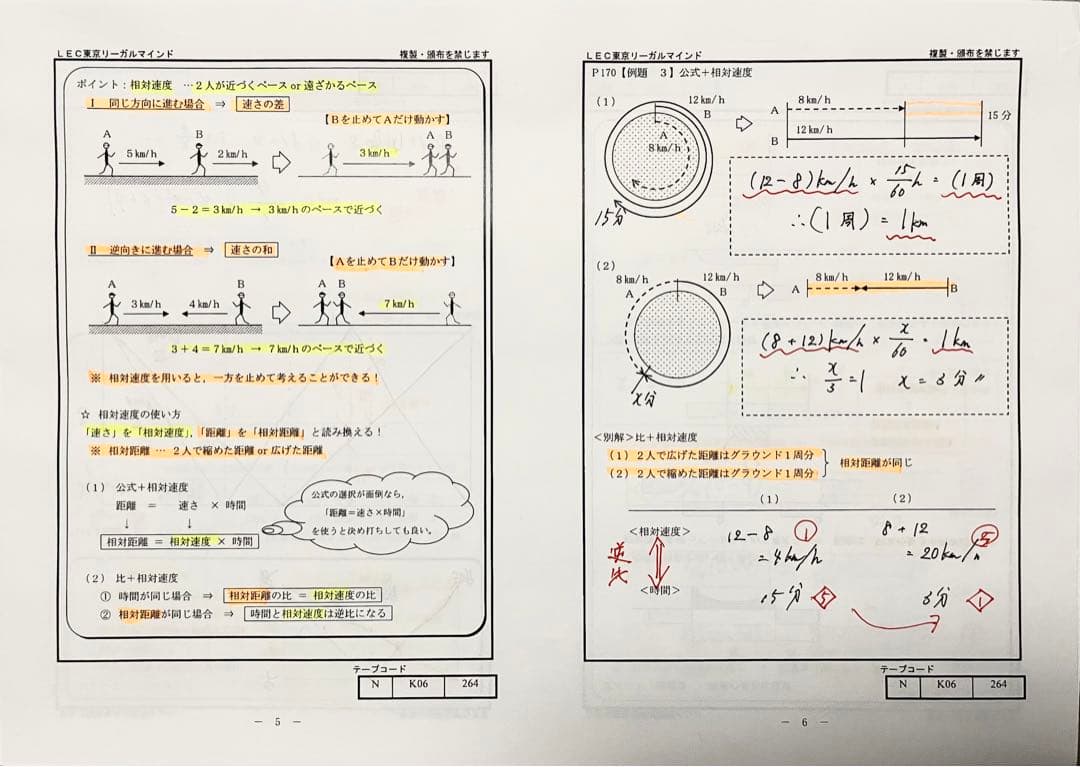 LEC東京リーガルマインド 複製・頒布を禁じます
ポイント：相対速度 …２人が近づくペース or 遠ざかるペース
Ⅰ 同じ方向に進む場合 ⇒ 速さの差
【Ｂを止めてＡだけ動かす】
A B A B
5km/h 2km/h 3km/h
5－2＝3km/h → 3km/hのペースで近づく
Ⅱ 逆向きに進む場合 ⇒ 速さの和
【Ａを止めてＢだけ動かす】
A B A B
3km/h 4km/h 7km/h
3＋4＝7km/h → 7km/hのペースで近づく
※ 相対速度を用いると，一方を止めて考えることができる！
☆ 相対速度の使い方
「速さ」を「相対速度」，「距離」を「相対距離」と読み換える！
※ 相対距離 … ２人で縮めた距離 or 広げた距離
（1） 公式＋相対速度
距離 ＝ 速さ × 時間
↓ ↓
相対距離 ＝ 相対速度 × 時間
公式の選択が面倒なら，
「距離＝速さ×時間」
を使うと決め打ちしても良い。
（2） 比＋相対速度
① 時間が同じ場合 ⇒ 相対距離の比 ＝ 相対速度の比
② 相対距離が同じ場合 ⇒ 時間と相対速度は逆比になる
テープコード
N K06 264
－ 5 －
LEC東京リーガルマインド 複製・頒布を禁じます
P170【例題 3】公式＋相対速度
（1）
12km/h
B
A
8km/h
15分
A 8km/h
B 12km/h
15分
(12－8)km/h × 15/60 h = (1周)
∴(1周) = 1km
（2）
8km/h
A
12km/h
B
x分
8km/h 12km/h
A B
(8＋12)km/h × x/60 = 1km
∴ x/3 = 1 x = 3分〃
＜別解＞比＋相対速度
（1）２人で広げた距離はグラウンド１周分
（2）２人で縮めた距離はグラウンド１周分
相対距離が同じ
（1） （2）
＜相対速度＞ 12－8 ① 8＋12
=4km/h =20km/h ⑤
逆比
＜時間＞
15分 5 3分 1
テープコード
N K06 264
－ 6 －